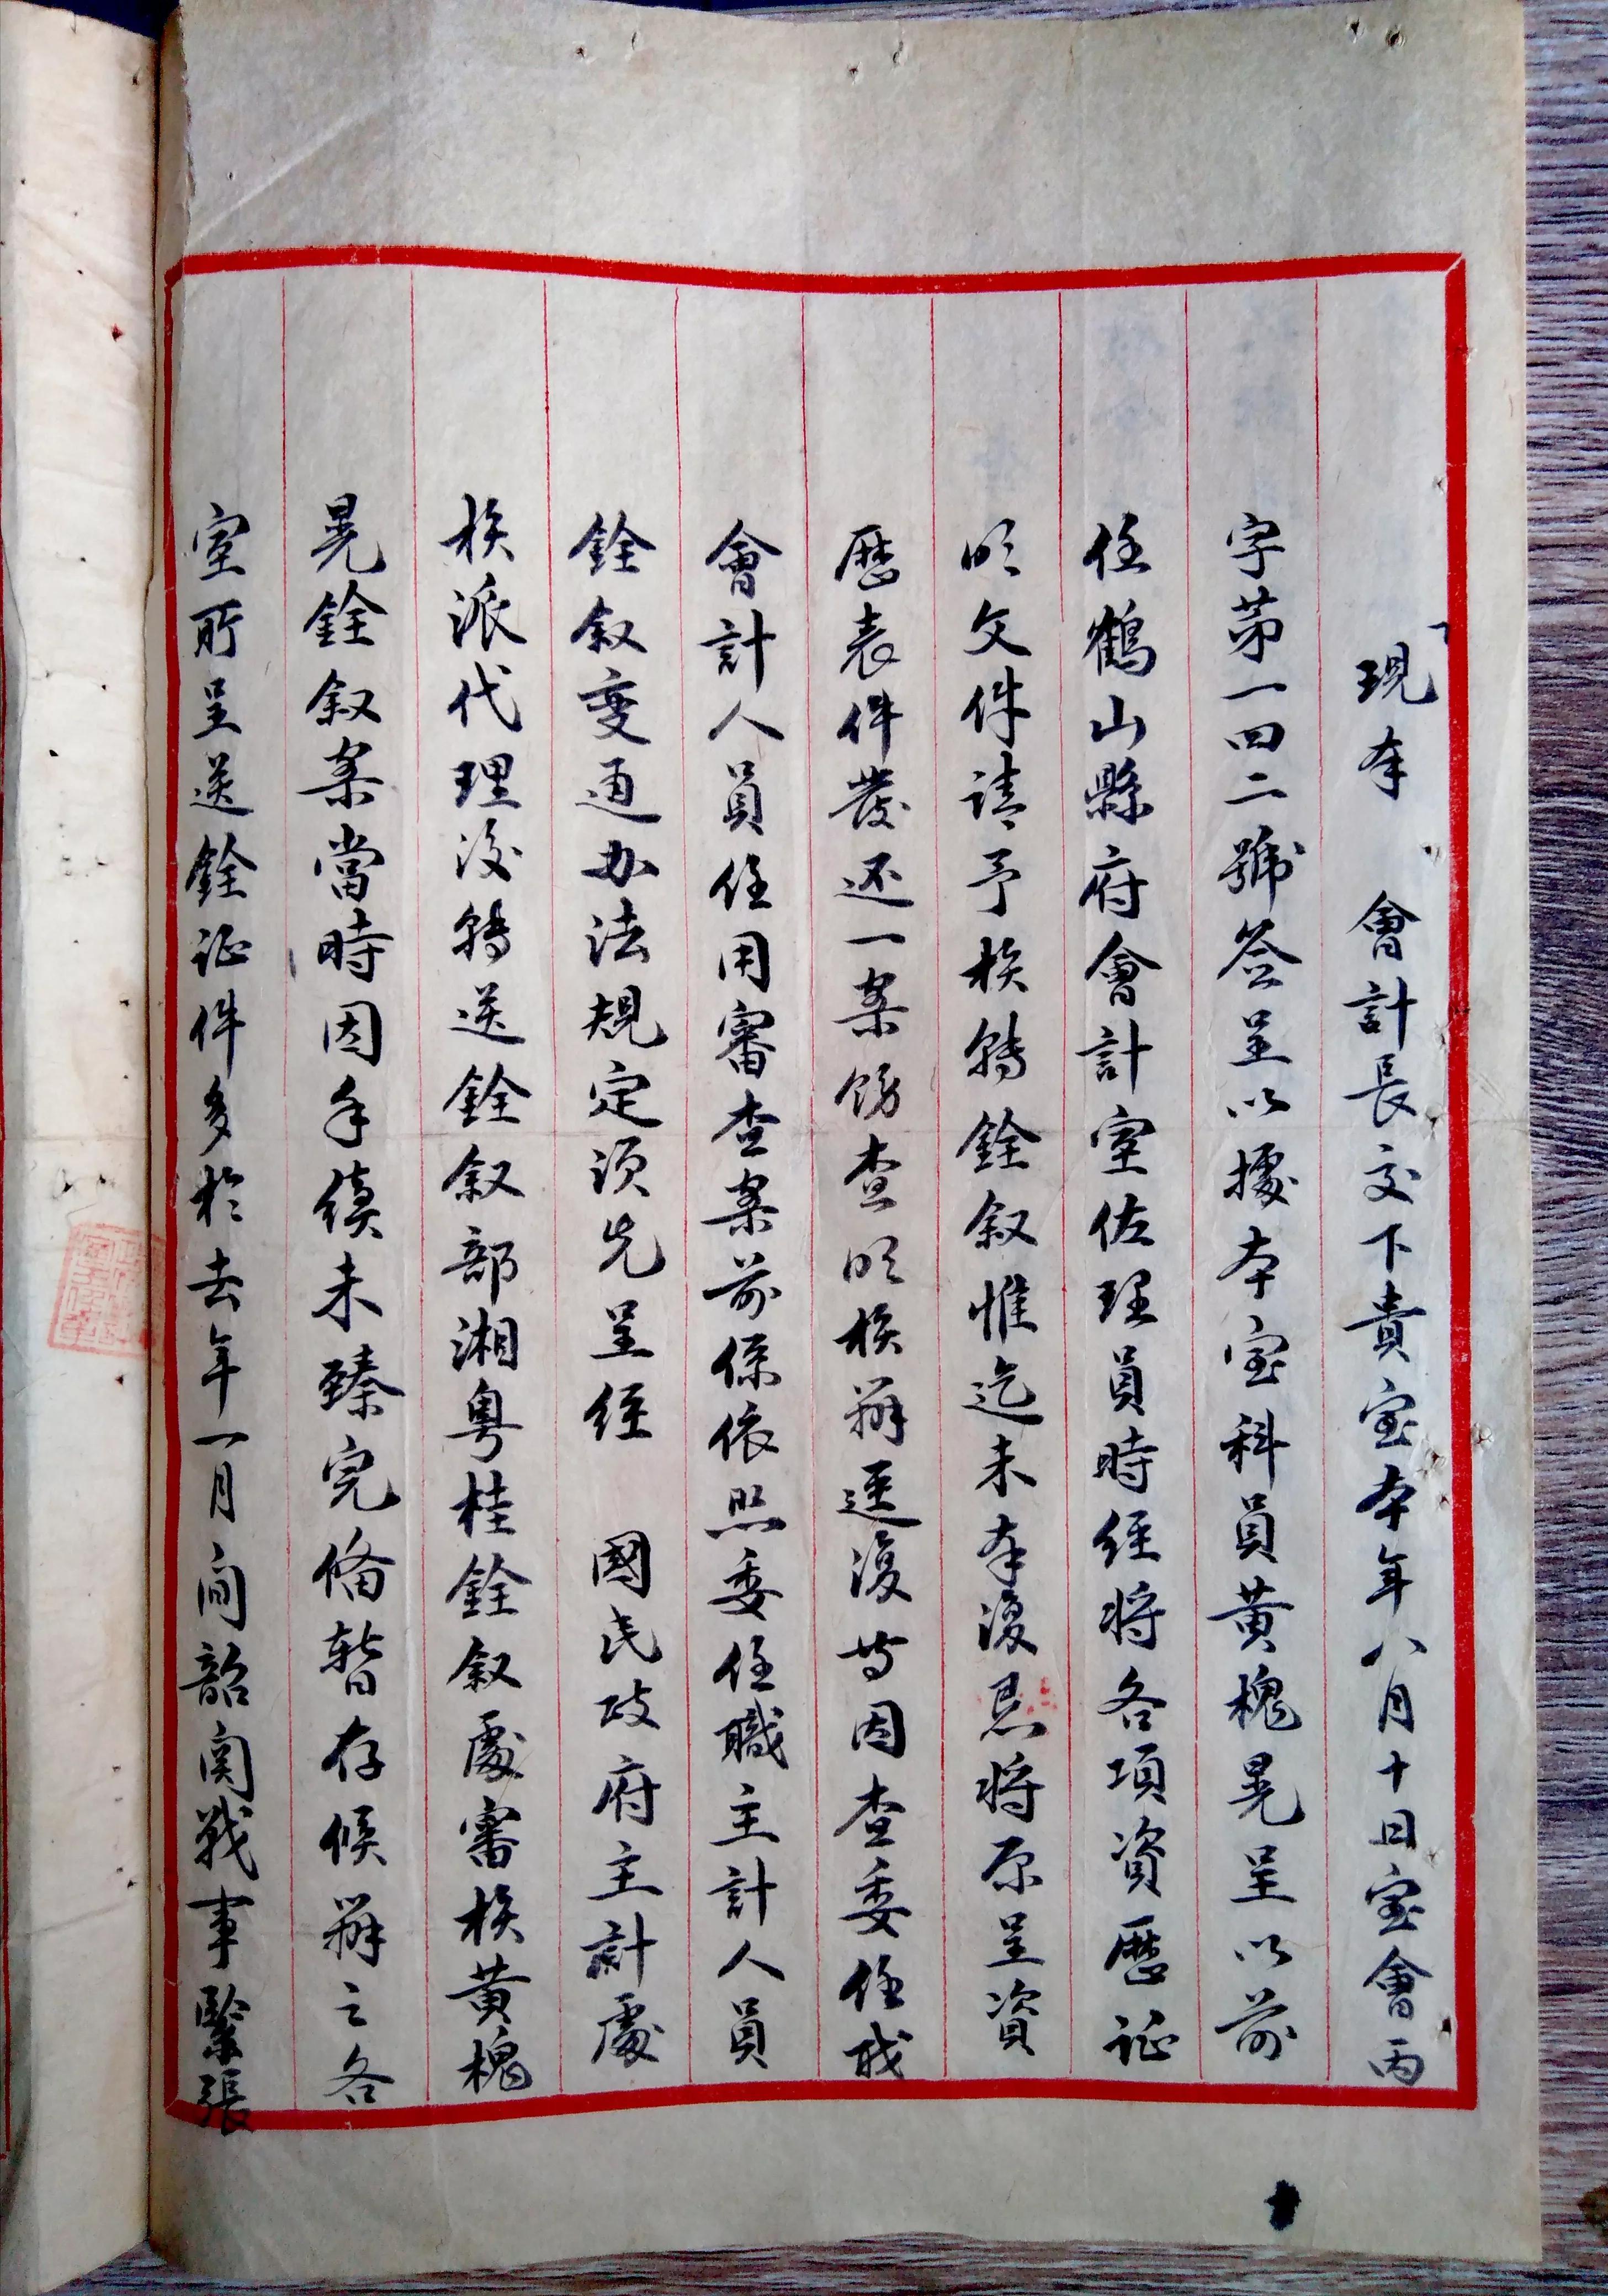 現奉　會計長交下貴室本年八月十日室會丙
字第一四二號簽呈以據本室科員黃槐晃呈以前
任鶴山縣府會計室佐理員時經將各項資歷証
明文件請予核轉銓叙惟迄未奉復懇將原呈資
歷表件發还一案飭查明核辦逕復等因查委任或
會計人員任用審查案前係依照委任職主計人員
銓叙变通办法規定須先呈經　國民政府主計處
核派代理後轉送銓叙部湘粵桂銓叙處審核黃槐
晃銓叙案當時因手續未臻完備暫存候辦之各
室所呈送銓証件多於去年一月间韶関戰事緊張